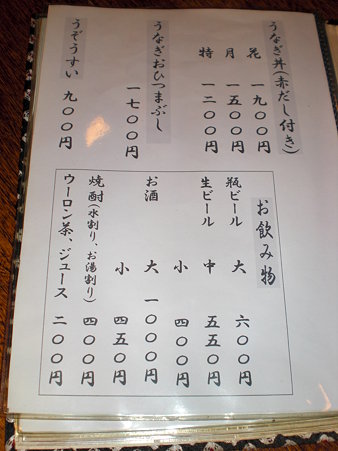 うなぎ丼(赤だし付き)
花 一九〇〇円
月 一五〇〇円
特 一二〇〇円
うなぎおひつまぶし
一七〇〇円
うぞうすい 九〇〇円
お飲み物
瓶ビール 大 六〇〇円
生ビール 中 五五〇円
小 四〇〇円
お酒 大 一〇〇〇円
小 四五〇円
焼酎(水割り、お湯割り) 四〇〇円
ウーロン茶、ジュース 二〇〇円